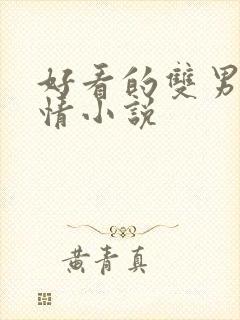 好看的雙男
情小說
黃青真